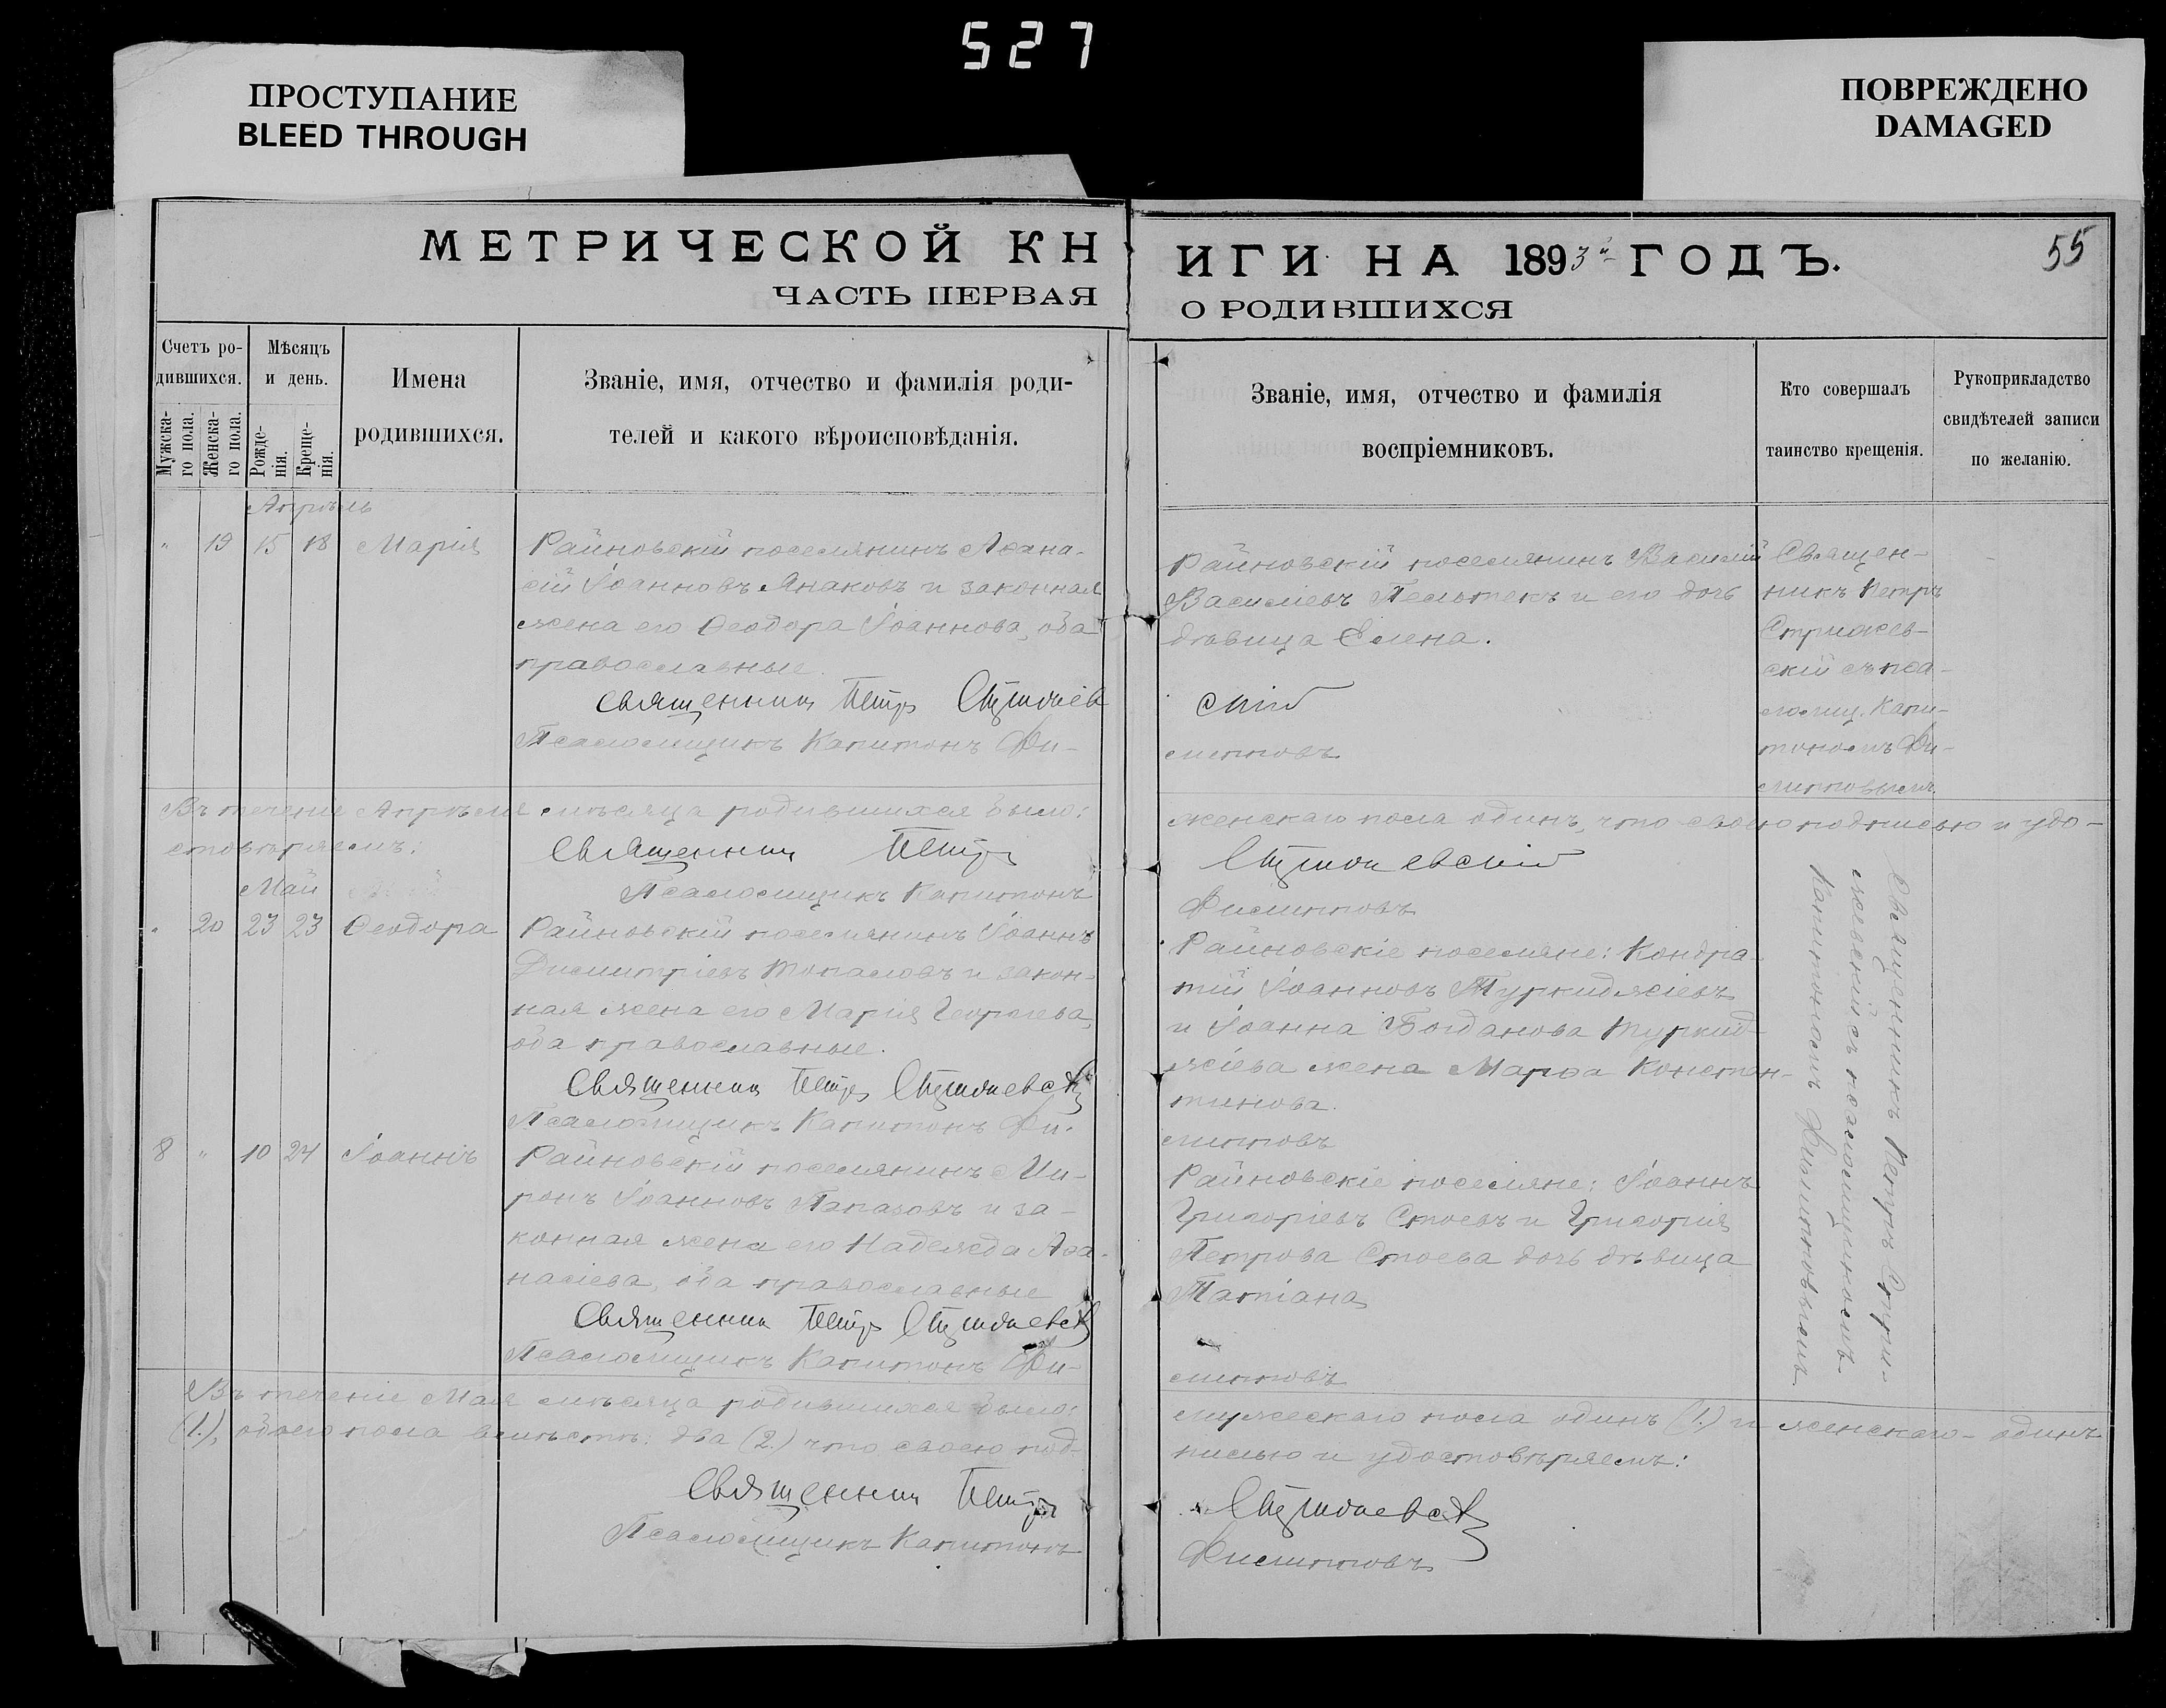 527
ПРОСТУПАНИЕ
BLEED THROUGH
ПОВРЕЖДЕНО
DAMAGED
МЕТРИЧЕСКОЙ КНИГИ НА 1893й ГОДЪ.
55
ЧАСТЬ ПЕРВАЯ О РОДИВШИХСЯ
Счетъ ро-
дившихся.
Мужска-
го пола.
Женска-
го пола.
Мѣсяцъ
и день.
Рожде-
нія.
Креще-
нія.
Имена
родившихся.
Званіе, имя, отчество и фамилія роди-
телей и какого вѣроисповѣданія.
Званіе, имя, отчество и фамилія
воспріемниковъ.
Кто совершалъ
таинство крещенія.
Рукоприкладство
свидѣтелей записи
по желанію.
Апрѣль
" 19 15 18 Марія
Райновскій поселянинъ Аѳана-
сій Іоанновъ Янаковъ и законная
жена его Ѳеодора Іоаннова, оба
православные.
Священникъ Петръ Стрижев
Псаломщикъ Капитонъ Фи-
Райновскій поселянинъ Василій
Василіевъ Пельтекъ и его дочь
дѣвица Елена.
скій
липповъ
Священ-
никъ Петръ
Стрижев-
скій съ пса-
ломщ. Капи-
тономъ Фи-
липповымъ.
Въ теченіе Апрѣля мѣсяца родившихся было: женскаго пола одинъ, что своею подписью и удо-
стовѣряемъ:
Священникъ Петръ Стрижевскій
Псаломщикъ Капитонъ Филипповъ
Май
" 20 23 23 Ѳеодора
Райновскій поселянинъ Іоаннъ
Димитріевъ Топаловъ и закон-
ная жена его Марія Георгіева,
оба православные.
Священникъ Петръ Стрижевскій
Псаломщикъ Капитонъ Фи-
Райновскіе поселяне: Кондра-
тій Іоанновъ Туркиджіевъ
и Іоанна Богданова Туркид-
жіева жена Марѳа Констан-
тинова.
липповъ
8 " 10 24 Іоаннъ
Райновскій поселянинъ Ми-
ронъ Іоанновъ Папазовъ и за-
конная жена его Надежда Аѳа-
насіева, оба православные
Священникъ Петръ Стрижевскій
Псаломщикъ Капитонъ Фи-
Райновскіе поселяне: Іоаннъ
Григоріевъ Стоевъ и Григорія
Петрова Стоева дочь дѣвица
Татіана
липповъ
Священникъ Петръ Стри-
жевскій съ псаломщикомъ
Капитономъ Филипповымъ.
Въ теченіе Мая мѣсяца родившихся было: мужескаго пола одинъ (1.) и женскаго - одинъ
(1.), обоего пола вмѣстѣ: два (2.) что своею под-
писью и удостовѣряемъ:
Священникъ Петръ Стрижевскій
Псаломщикъ Капитонъ Филипповъ